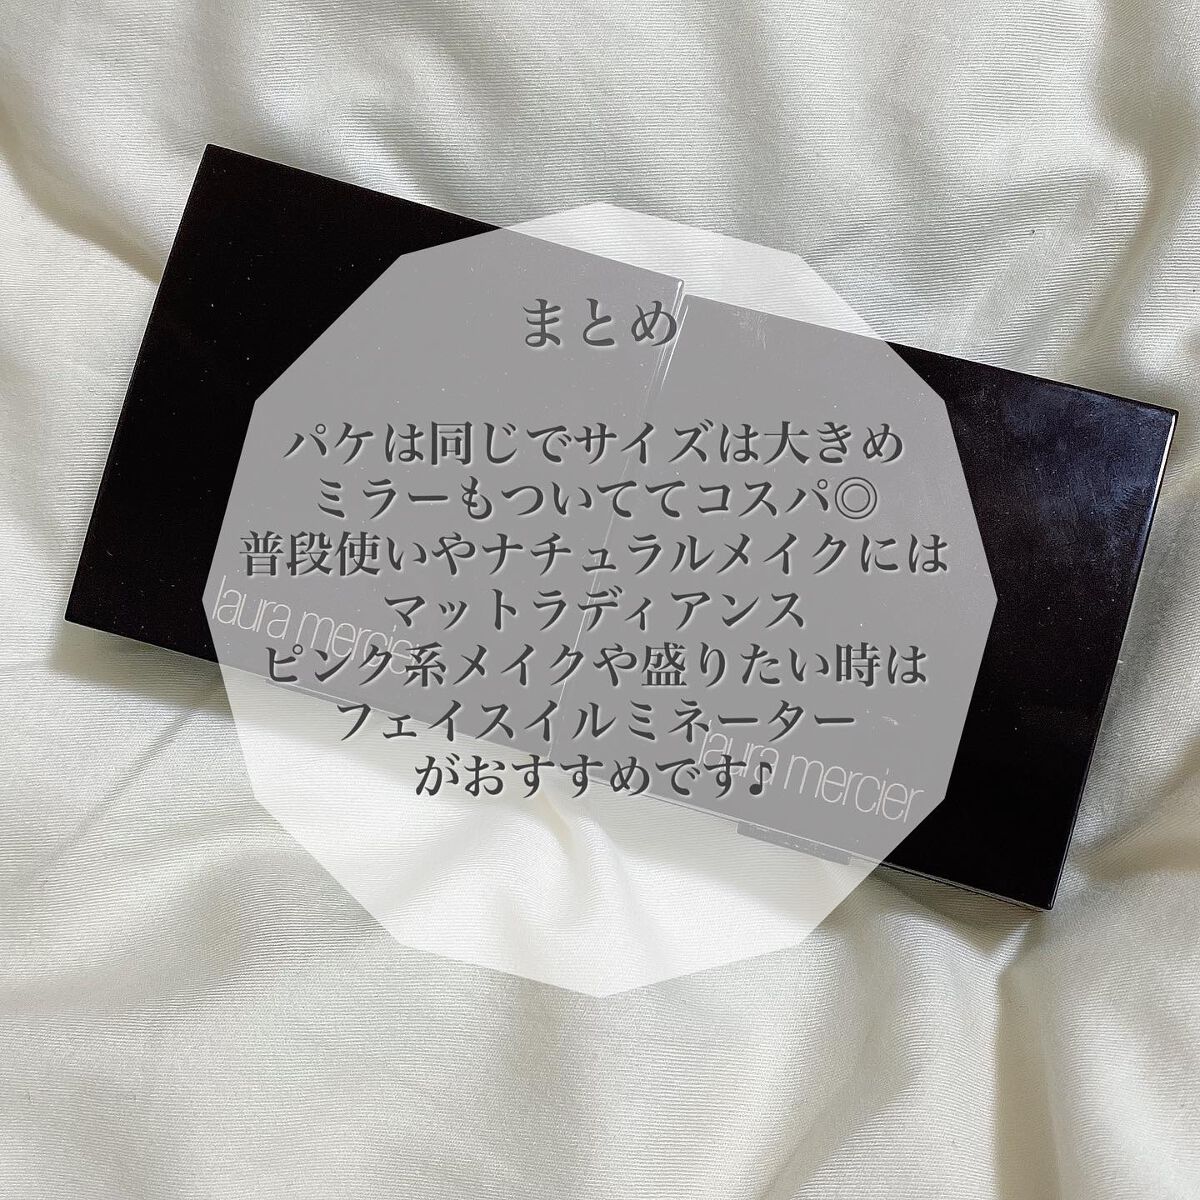 まとめ
パケは同じでサイズは大きめ
ミラーもついててコスパ◎
普段使いやナチュラルメイクには
マットラディアンス
ピンク系メイクや盛りたい時は
フェイスイルミネーター
がおすすめです♪
laura mercier
laura mercier